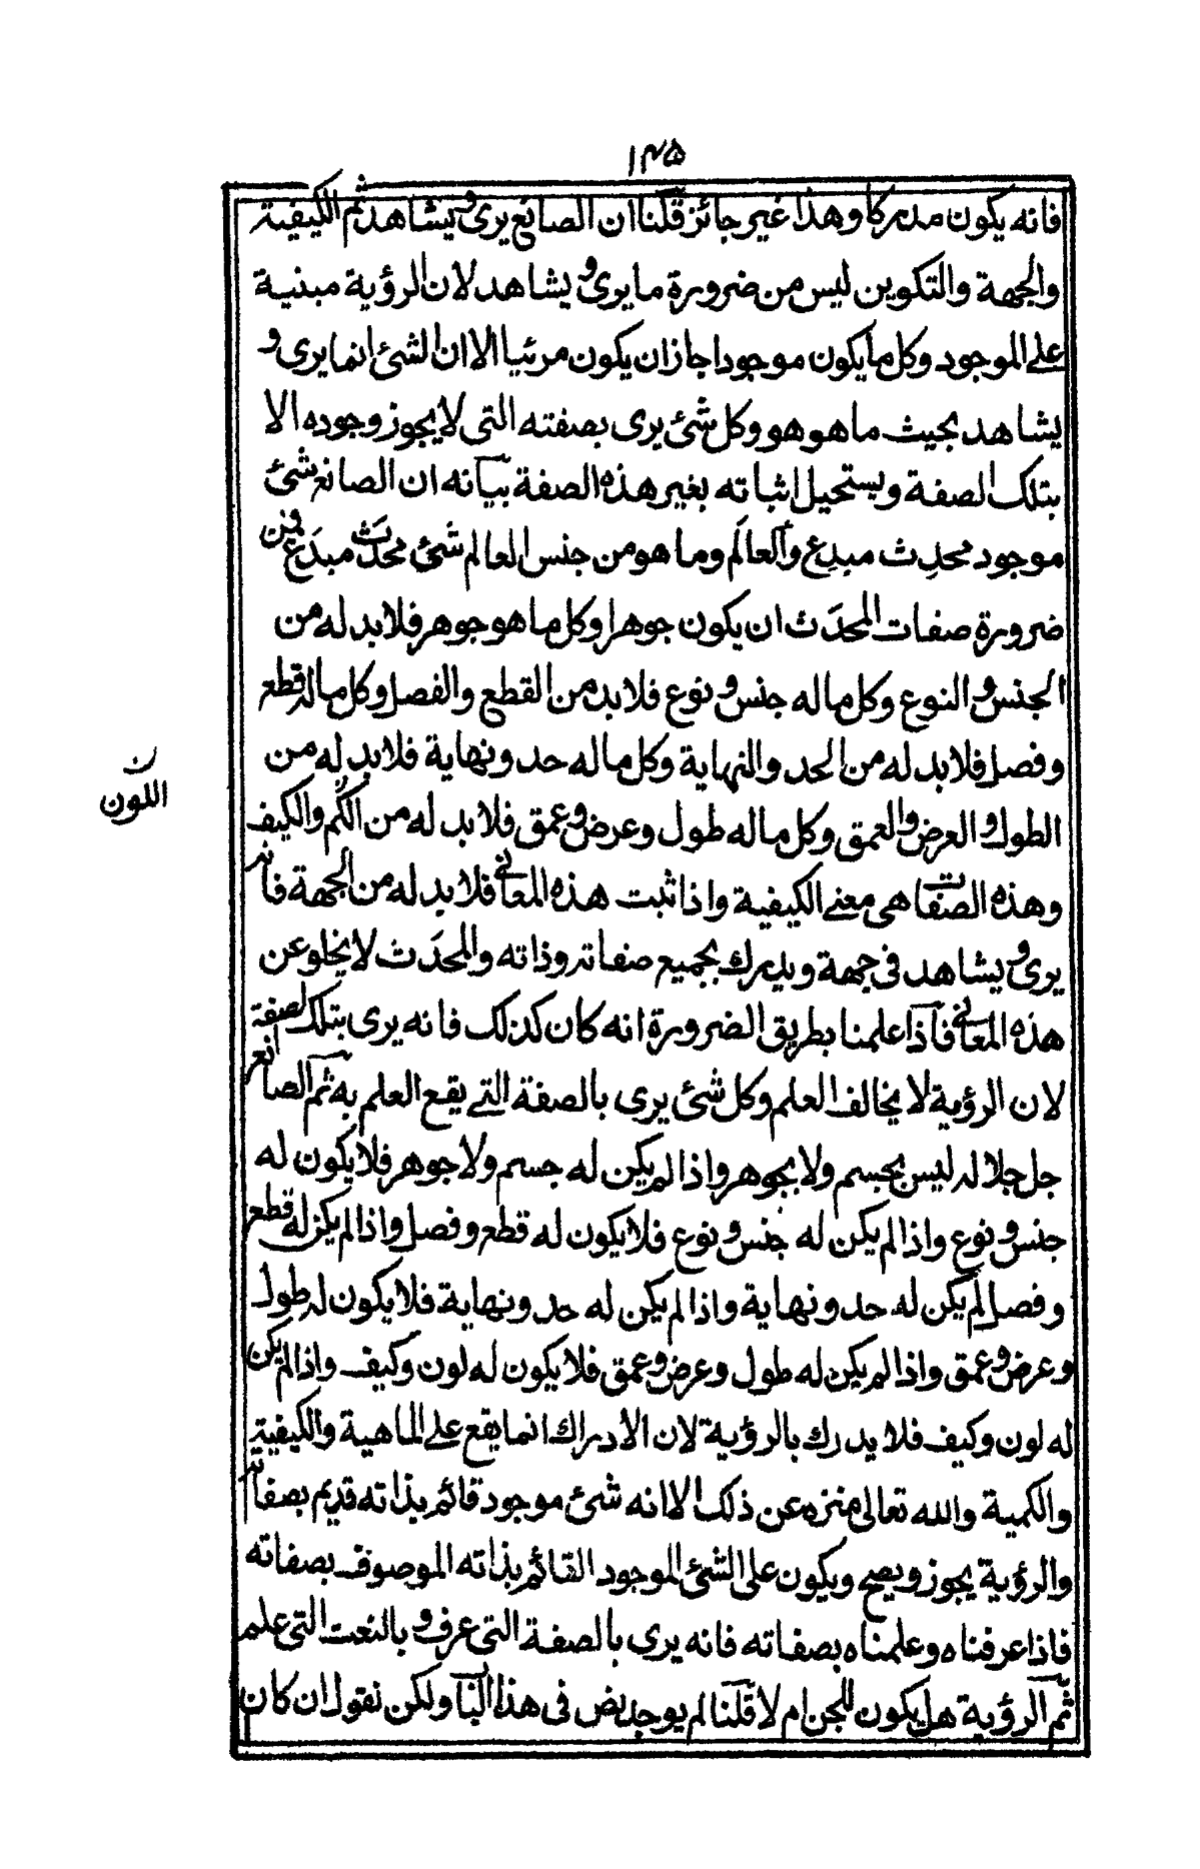 ١٣٥
فانه يكون مدركا وهذا غير جائز قلنا ان الصانع يرى ويشاهد ثم الكيفية
والجهة والتكوين ليس من ضرورة ما يرى ويشاهد لان الرؤية مبنية
على الموجود وكل ما يكون موجودا جاز ان يكون مرئيا الا ان الشئ انما يرى و
يشاهد بحيث ما هو هو وكل شئ يرى بصفته التى لا يجوز وجوده الا
بتلك الصفة ويستحيل اثباته بغير هذه الصفة بيانه ان الصانع شئ
موجود محدِث مبدِع والعالَم وما هو من جنس العالم شئ محدَث مبدَع فمن
ضرورة صفات المحدَث ان يكون جوهرا وكل ما هو جوهر فلا بد له من
الجنس والنوع وكل ما له جنس ونوع فلا بد من القطع والفصل وكل ما له قطع
وفصل فلا بد له من الحد والنهاية وكل ما له حد ونهاية فلا بد له من
الطول والعرض والعمق وكل ما له طول وعرض وعمق فلا بد له من الكم والكيف
ن
اللون
وهذه الصفات هى معنى الكيفية واذا ثبت هذه المعانى فلا بد له من الجهة فانه
يرى ويشاهد فى جهة ويدرك بجميع صفاته وذاته والمحدَث لا يخلو عن
هذه المعانى فاذا علمنا بطريق الضرورة انه كان كذلك فانه يرى بتلك الصفة
لان الرؤية لا يخالف العلم وكل شئ يرى بالصفة التى يقع العلم به ثم الصانع
جل جلاله ليس بجسم ولا بجوهر واذا لم يكن له جسم ولا جوهر فلا يكون له
جنس ونوع واذا لم يكن له جنس ونوع فلا يكون له قطع وفصل واذا لم يكن له قطع
وفصل لم يكن له حد ونهاية واذا لم يكن له حد ونهاية فلا يكون له طول
وعرض وعمق واذا لم يكن له طول وعرض وعمق فلا يكون له لون وكيف واذا لم يكن
له لون وكيف فلا يدرك بالرؤية لان الادراك انما يقع على الماهية والكيفية
والكمية والله تعالى منزه عن ذلك الا انه شئ موجود قائم بذاته قديم بصفاته
والرؤية يجوز ويصح ويكون على الشئ الموجود القائم بذاته الموصوف بصفاته
فاذا عرفناه وعلمناه بصفاته فانه يرى بالصفة التى عرف وبالنعت التى علم
ثم الرؤية هل يكون للجن ام لا قلنا لم يوجد نص فى هذا الباب ولكن نقول ان كان